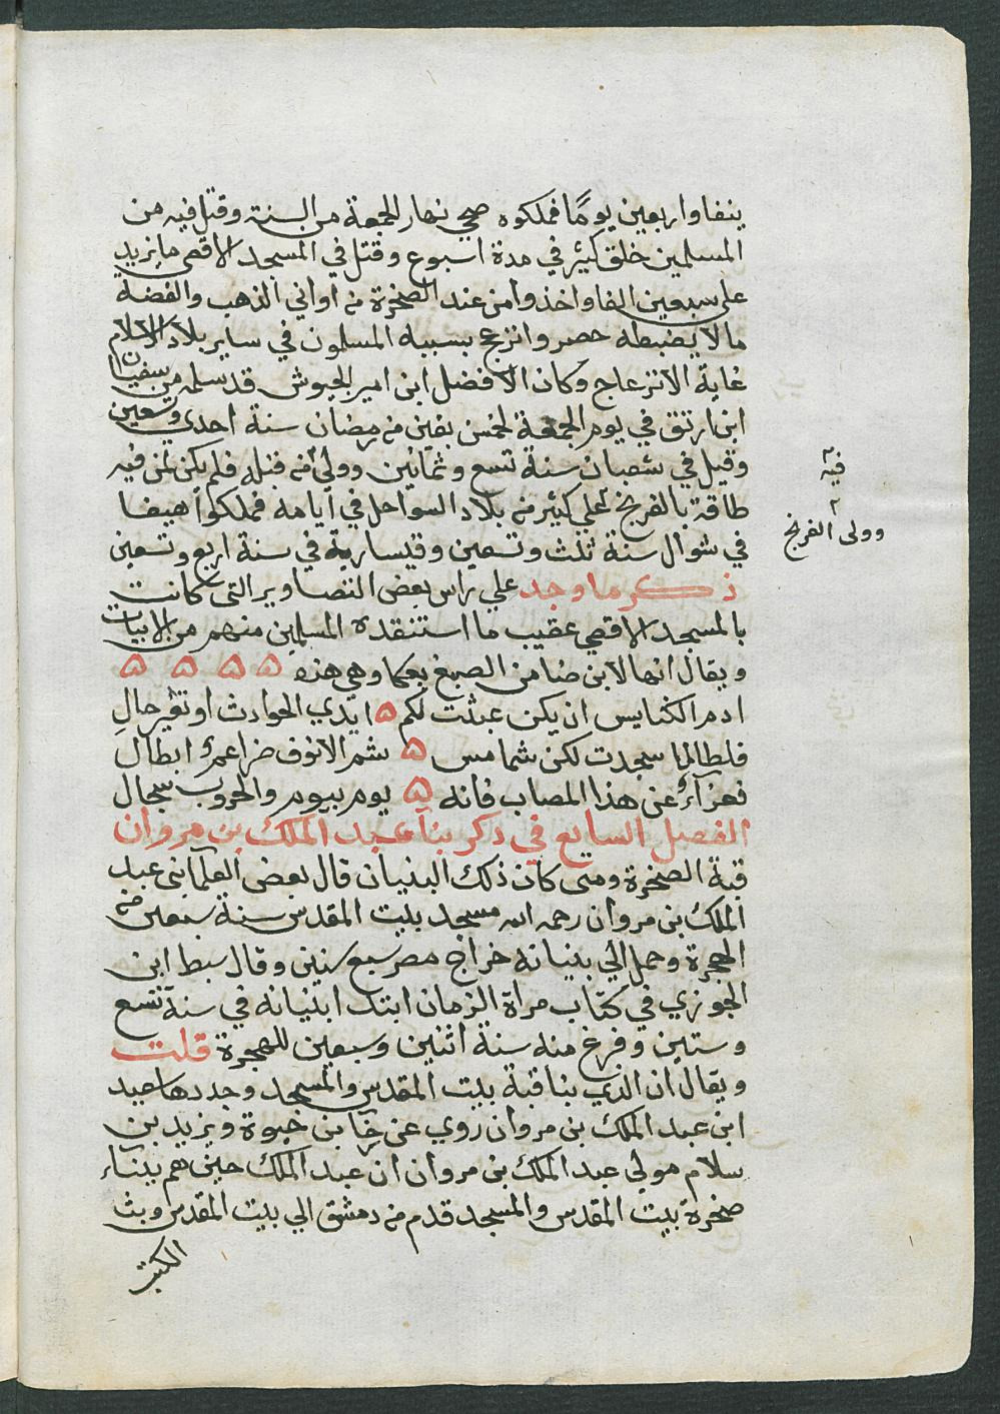 ينفا واربعين يومًا فملكوه صحي نهار الجمعة من السنة وقتل فيه من
المسلمين خلق كثير في مدة اسبوع وقتل في المسجد الاقصى ما يزيد
على سبعين الفا واخذوا من عند الصخرة من اواني الذهب والفضة
مالا يضبطه حصر وانزعج بسببه المسلمون في ساير بلاد الاسلام
غاية الانزعاج وكان الافضل ابن امير الجيوش قد سلمه من سفيان
ابن ارتق في يوم الجمعة لخمس بقين من رمضان سنة احدى وتسعين
وقيل في شعبان سنة تسع وثمانين وولي من قبله فلم يكن لمن فيه
طاقة بالفرنج على كثير من بلاد السواحل في ايامه فملكوا هيفا
في شوال سنة ثلث وتسعين وقيسارية في سنة اربع وتسعين
ذكر ما وجد علي راس بعض التصاوير التي كانت
بالمسجد الاقصي عقيب ما استنقده المسلمين منهم من الابيات
ويقال انها لابن ضامن الصبغ بعكا وهي هذه ه ه ه ه
ادم الكنايس ان يكن عبثت لكم ه ايدي الحوادث او تغير حالِ
فلطالما سجدت لكن شمامس ه شم الانوف ضراعم ابطال
فعزآء عن هذا المصاب فانه ه يوم بيوم والحروب سجال
الفصل السابع في ذكر بنآ عبد الملك بن مروان
قبة الصخرة ومتى كان ذلك البنيان قال بعض العلما بنى عبد
الملك بن مروان رحمه الله مسجد بيت المقدس سنة سبعين من
الهجرة وحمل الي بنيانه خراج مصر سبع سنين وقال سبط ابن
الجوزي في كتاب مراة الزمان ابتدا بنيانه في سنة تسع
وستين وفرغ منه سنة اثنين وسبعين للهجرة قلت
ويقال ان الذي بنا قبة بيت المقدس والمسجد وجددها سعيد
ابن عبد الملك بن مروان روي عن رجا بن حيوة ويزيد بن
سلام مولي عبد الملك بن مروان ان عبد الملك حين هم ببناء
صخرة بيت المقدس والمسجد قدم من دمشق الي بيت المقدس وبث
الكتب
فيه
وولى الفرنج